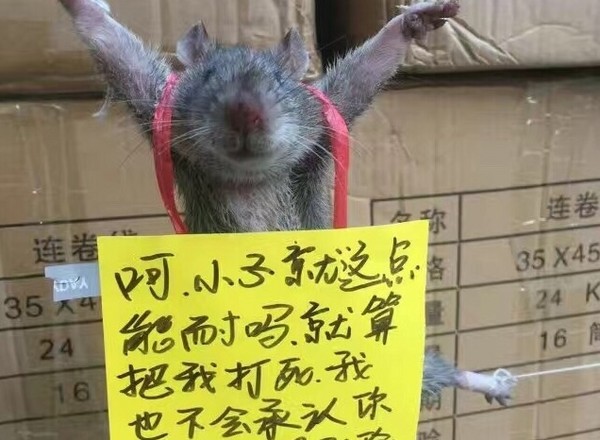 连卷袋
35 X4
24
16
YAOY
名称
连卷
格
35 X45
量
24 K
16 筒
呵.小子就这点
能耐吗.就算
把我打死.我
也不会承认你